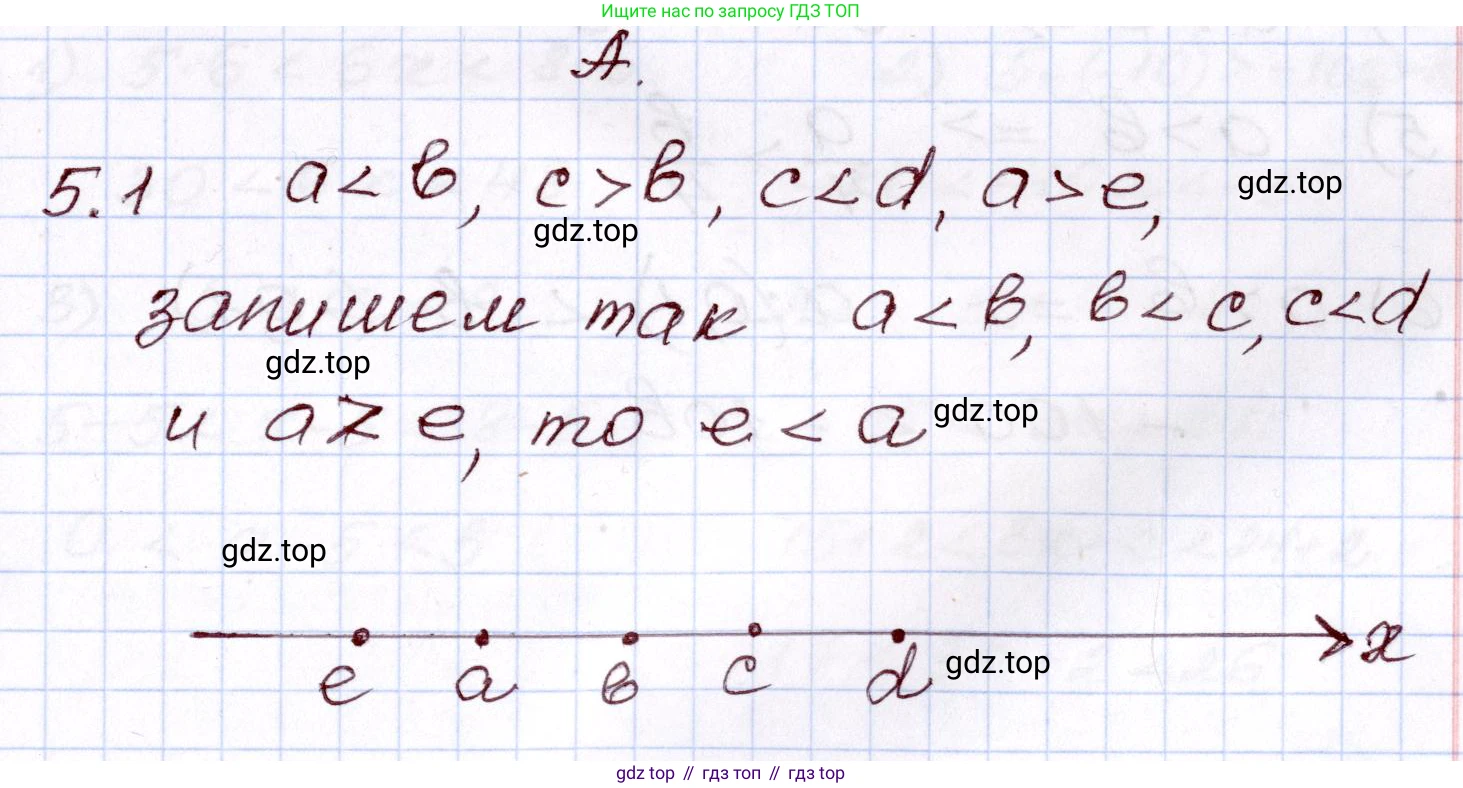 Ищите нас по запросу ГДЗ ТОП
А.
5.1 a < b, c > b, c < d, a > e, gdz.top
gdz.top
запишем так a < b, b < c, c < d
gdz.top
и a > e, то e < a gdz.top
gdz.top
x
e a b c d gdz.top
gdz top // гдз топ // гдз top